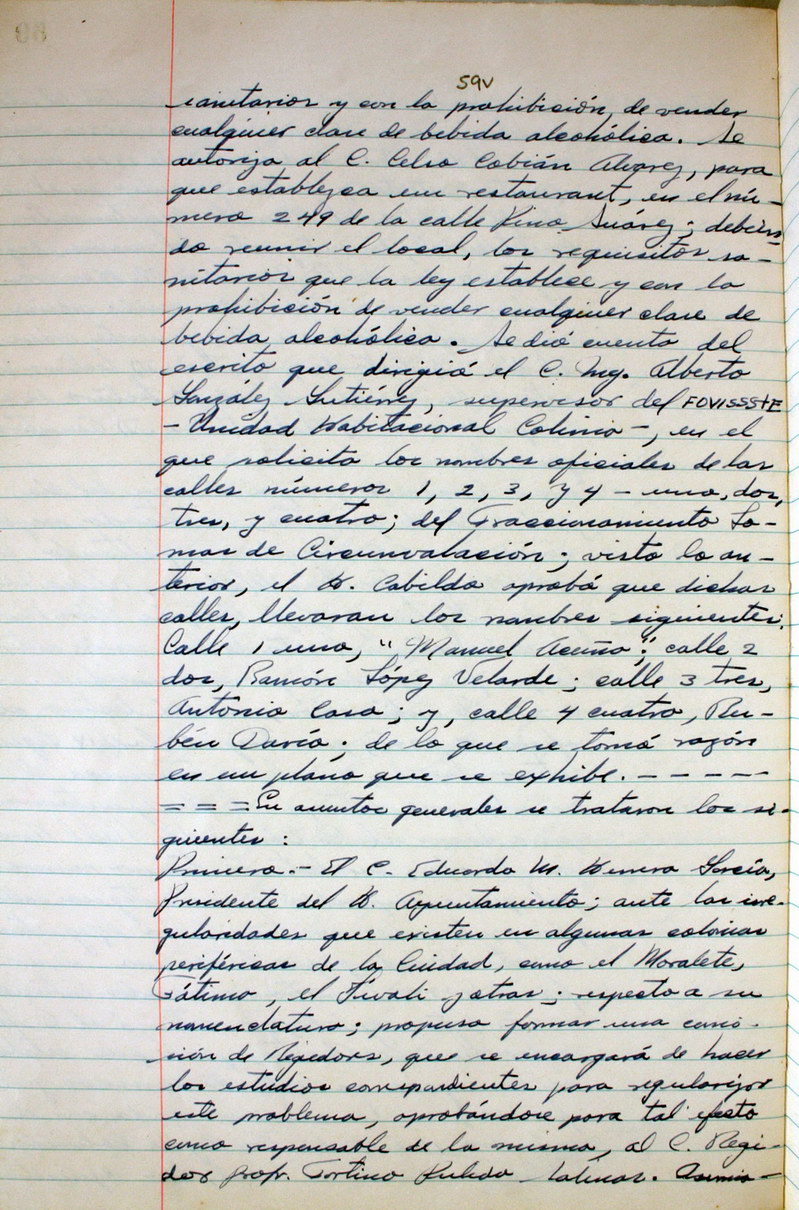 59v
sanitarios y con la prohibición, de vender
cualquier clase de bebida alcohólica. Se
autoriza al C. Celso Cobián Alvarez, para
que establezca un restaurant, en el nú-
mero 249 de la calle Pino Suárez; debien-
do reunir el local, los requisitos sa-
nitarios que la ley establece y con la
prohibición de vender cualquier clase de
bebida alcohólica. Se dió cuenta del
escrito que dirigió el C. Ing. Alberto
González Gutiérrez, supervisor del FOVISSSTE
- Unidad Habitacional Colima -, en el
que solicita los nombres oficiales de las
calles números 1, 2, 3, y 4 - uno, dos,
tres, y cuatro; del Fraccionamiento Lo-
mas de Circunvalación; visto lo an-
terior, el H. Cabildo aprobó que dichas
calles, llevaran los nombres siguientes:
Calle 1 uno, "Manuel Acuña"; calle 2
dos, Ramón López Velarde; calle 3 tres,
Antonio Caso; y, calle 4 cuatro, Ru-
bén Darío; de lo que se tomó razón
en un plano que se exhibe. - - - - -
= = = En asuntos generales se trataron los si-
guientes:
Primero.- El C. Eduardo M. Herrera García,
Presidente del H. Ayuntamiento; ante las irre-
gularidades que existen en algunas colonias
periféricas de la Ciudad, como el Moralete,
Fátima, el Tívoli y otras; respecto a su
nomenclatura; propuso formar una comi-
sión de Regidores, que se encargará de hacer
los estudios correspondientes para regularizar
este problema, aprobándose para tal efecto
como responsable de la misma, al C. Regi-
dor Profr. Salinas. Asimis-